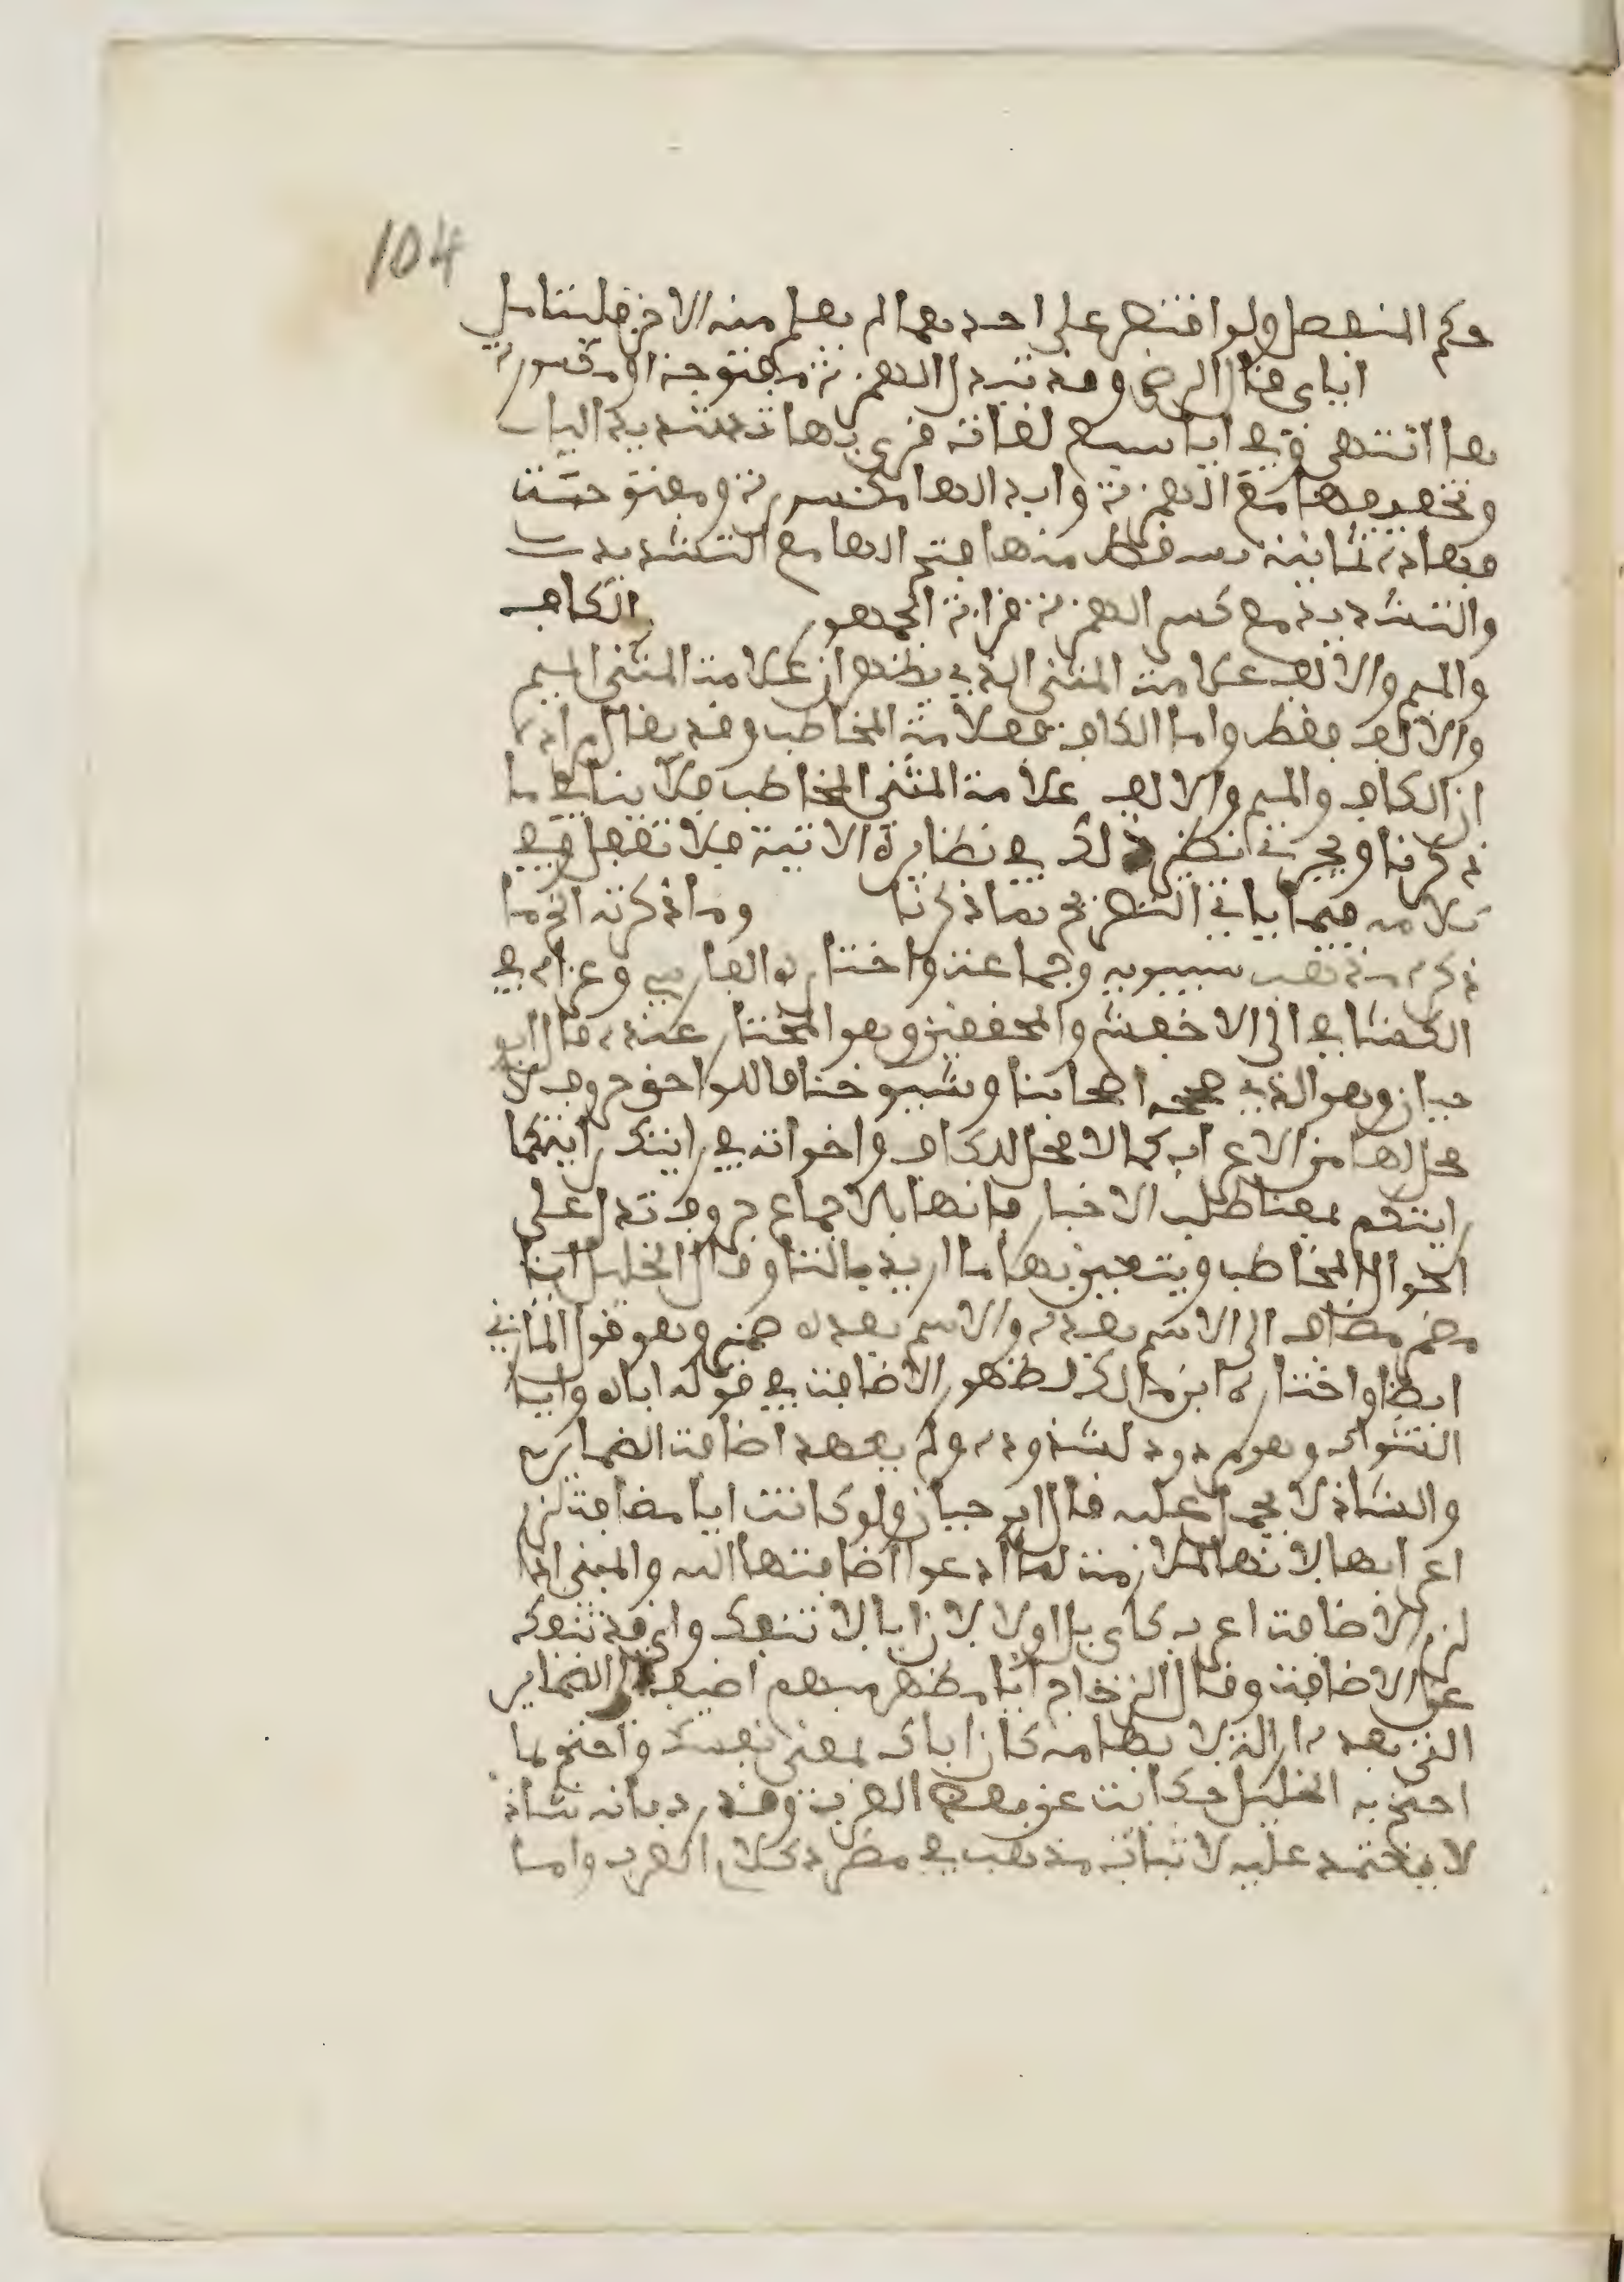 104
حكم المنفصل ولو اقتصر على احدهما لم يعلم منه الاخر فليتامل
اياى قال الرضى وقد تبدل الهمزة مفتوحة او مكسورة
هاء انتهى وفي ايا سبع لغات قرئ بها تشديد الياء
وتخفيفها مع الهمزة وابدالها مكسورة ومفتوحة
فهاذه ثمانية يسقط منها فتح الهاء مع التشديد
والتشديد مع كسر الهمزة قراءة الجمهور الكاف
والميم والالف علامة المثنى الذي يظهر ان علامة المثنى الميم
والالف فقط واما الكاف فعلامة المخاطب وقد يقال مراده
ان الكاف والميم والالف علامة المثنى المخاطب فلا ينافي ما
ذكرنا ويجري نظير ذلك في نظايره الاتية فلا تغفل وفي
كلامه فيما ياتي التصريح بما ذكرنا وما ذكرته اخ ما
ذكره مذهب سيبويه وجماعة واختاره الفارسي وعزاه في
الكشاف الى الاخفش والمحققين وهو المختار عنده قال ابو
حيان وهو الذي صححه اصحابنا وشيوخنا فاللواحق حروف لا
محل لها من الاعراب كما لا محل للكاف واخواته في ارايتك ارايتكما
ارايتكم بمعنا طلب الاخبار فانها بالاجماع حروف تدل على
احوال المخاطب ويتعين بها ما اريد بالتا وقال الخليل ايا
مضمر مضاف الى الاسم بعده والاسم بعده ضمير وهو قول المازني
ايضا واختاره ابن مالك لظهور الاضافة في قوله اياه وايا
الشواب وهو مردود لشذوذه ولم يعهد اضافة الضماير
والشاذ لا يحمل عليه قال ابو حيان ولو كانت ايا مضافة لزم
اعرابها لانها ملازمة لما ادعوا اضافتها اليه والمبني اذا
لزم الاضافة اعرب كاى بل اولا لان ايا لا تنفك واى قد تنفك
عن الاضافة وقال الزجاج ايا مظهر مبهم اضيف الى الضماير
التي بعده ازالة لابهامه كان اياك بمعنى نفسك واحتج بما
احتج به الخليل حكاية عن بعض العرب وقد رد بانه شاذ
لا يعتمد عليه لاثباته مذهب في مطرد كلام العرب واما